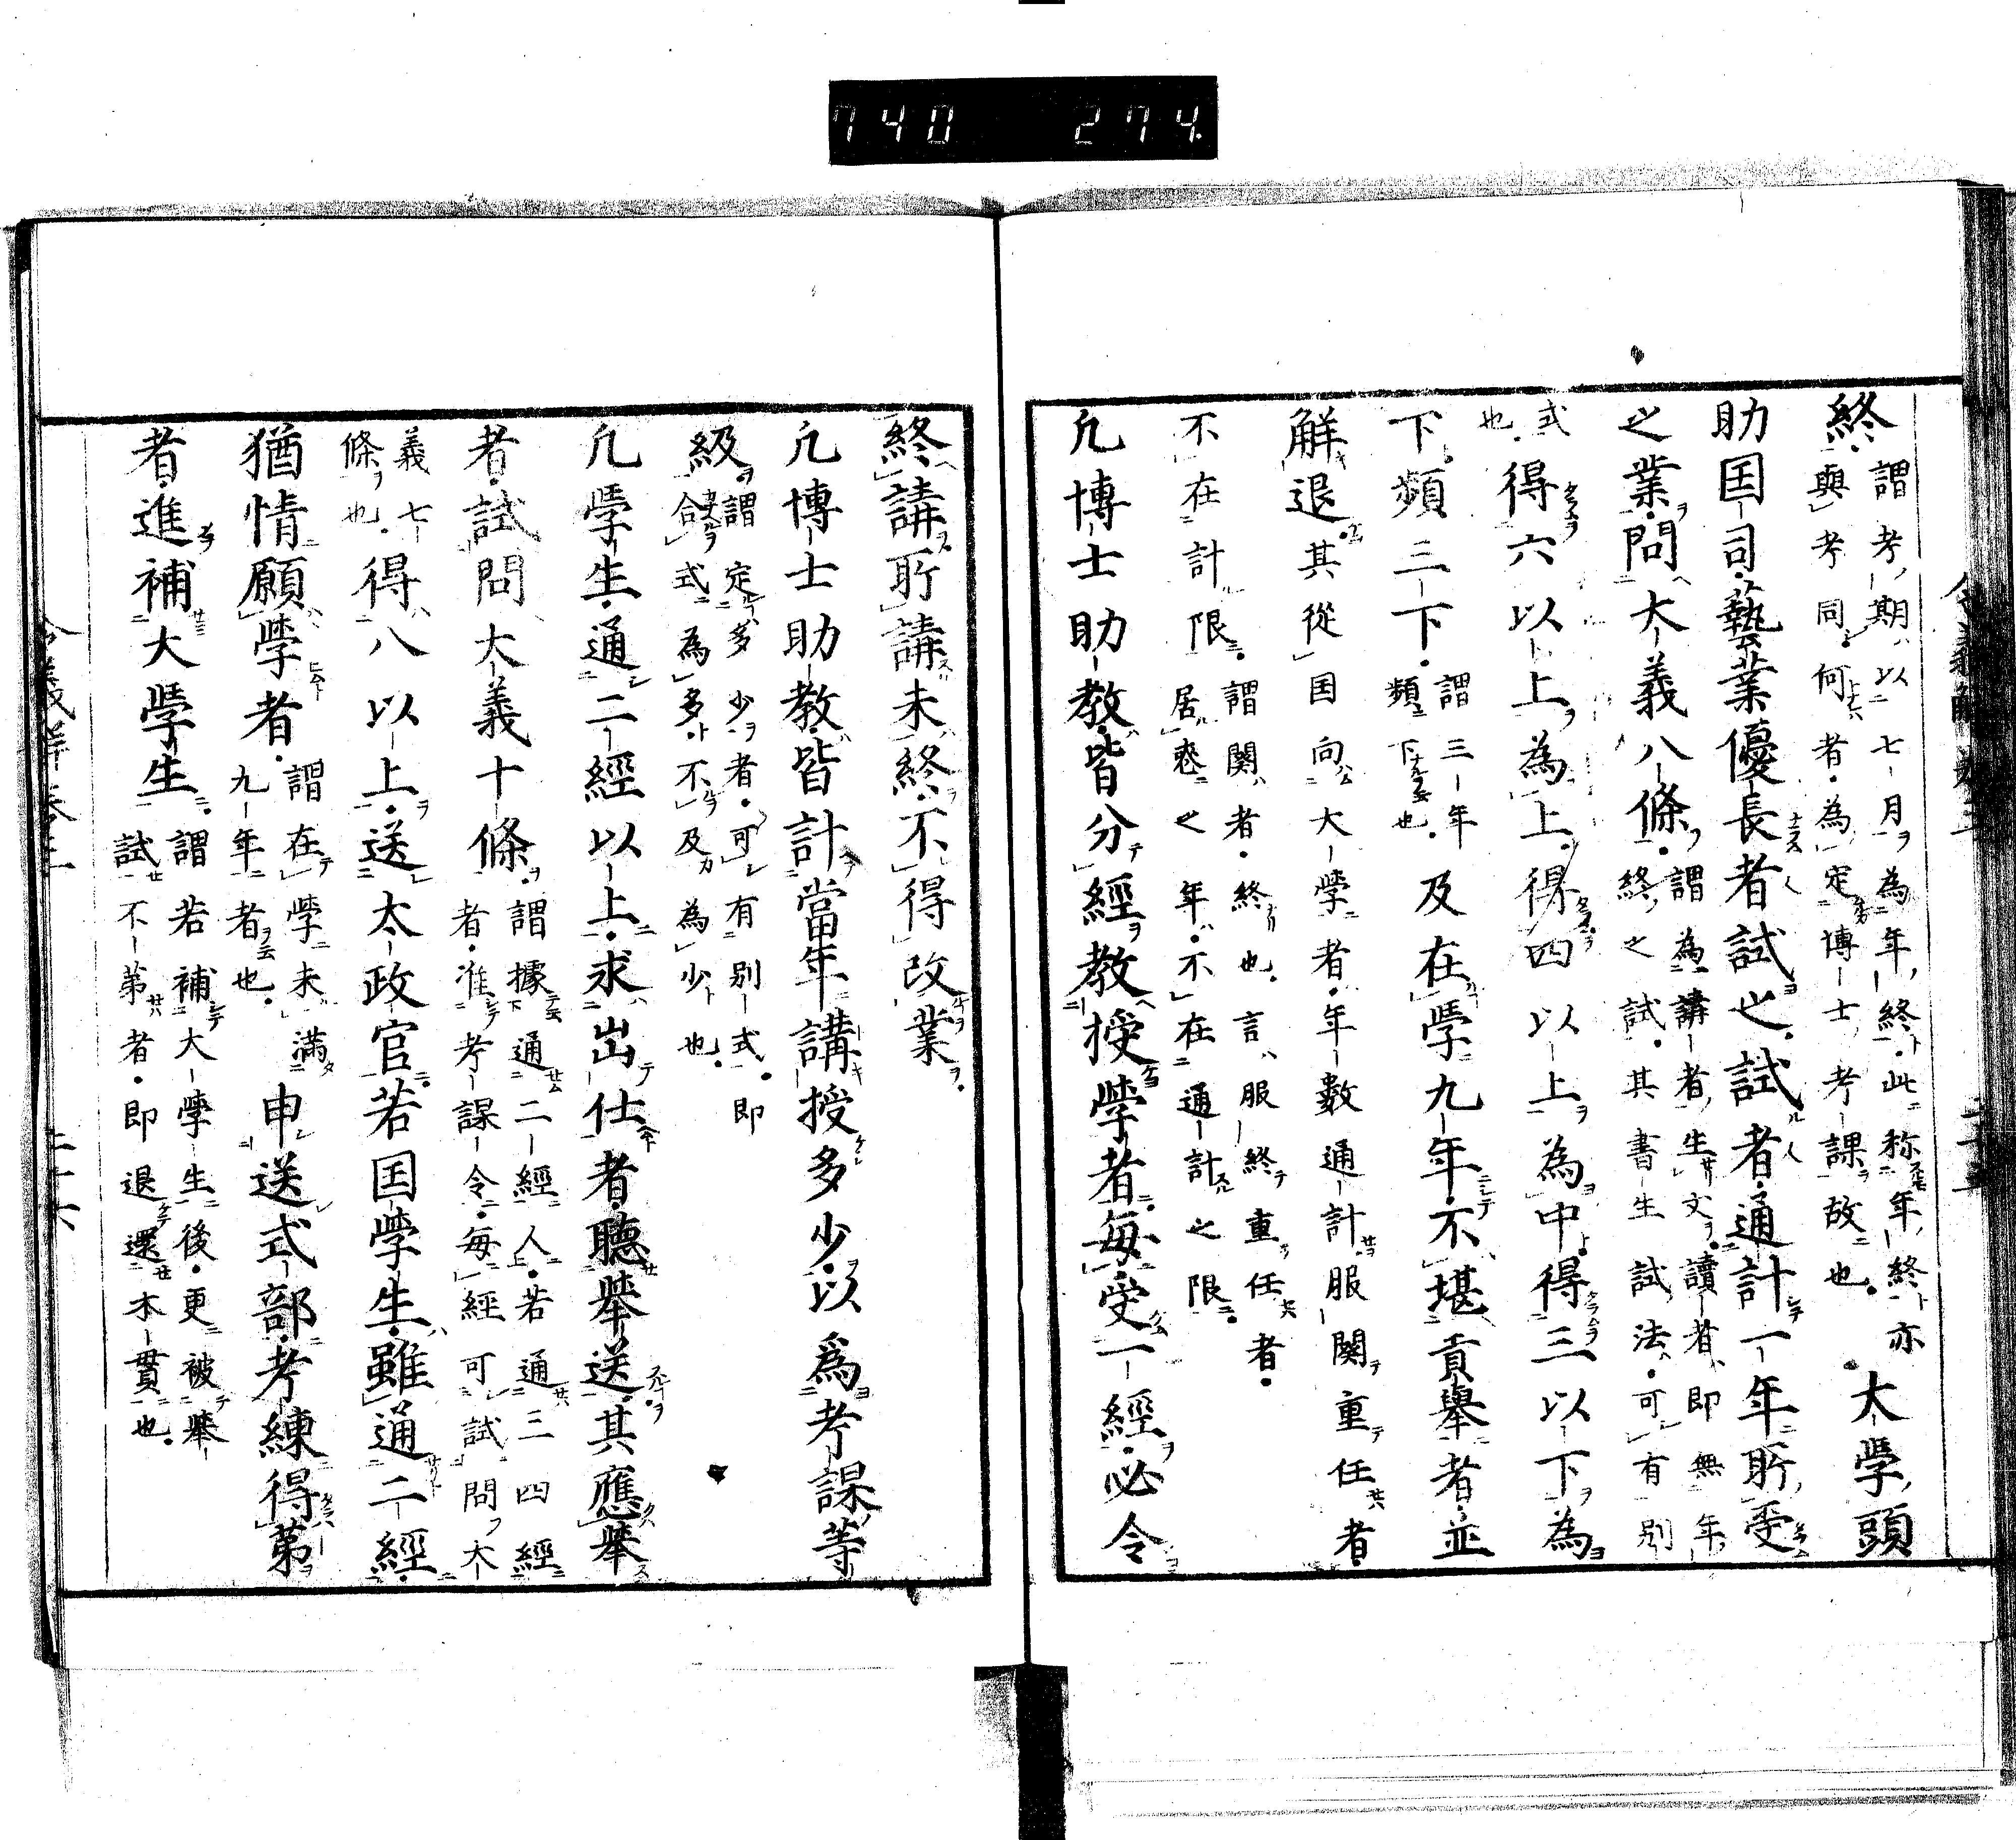 740 274.
終謂考期以七月為年終此称年終亦
與考同何者為定博士考課故也大學頭
助国司藝業優長者試之試者通計一年所受
之業問大義八條謂為講者生文讀者即無年
終之試其書生試法可有別
式
也得六以上為上得四以上為中得三以下為
下頻三下謂三年
頻下也及在學九年不堪貢舉者並
解退其從国向大學者年數通計服闋重任者
不在計限謂闋者終也言服終重任者
居喪之年不在通計之限
凢博士助教皆分經教授學者每受一經必令
終講所講未終不得改業
凢博士助教皆計當年講授多少以為考課等
級謂定多少者可有別式即
合式為多不及為少也
凢學生通二經以上求出仕者聽舉送其應舉
者試問大義十條謂據通二經人若通三四經
者准考課令每經可試問大
義七
條也得八以上送太政官若国學生雖通二經
猶情願學者謂在學未滿
九年者也申送式部考練得第
者進補大學生謂若補大學生後更被舉
試不第者即退還本貫也
令義解卷三
二十六